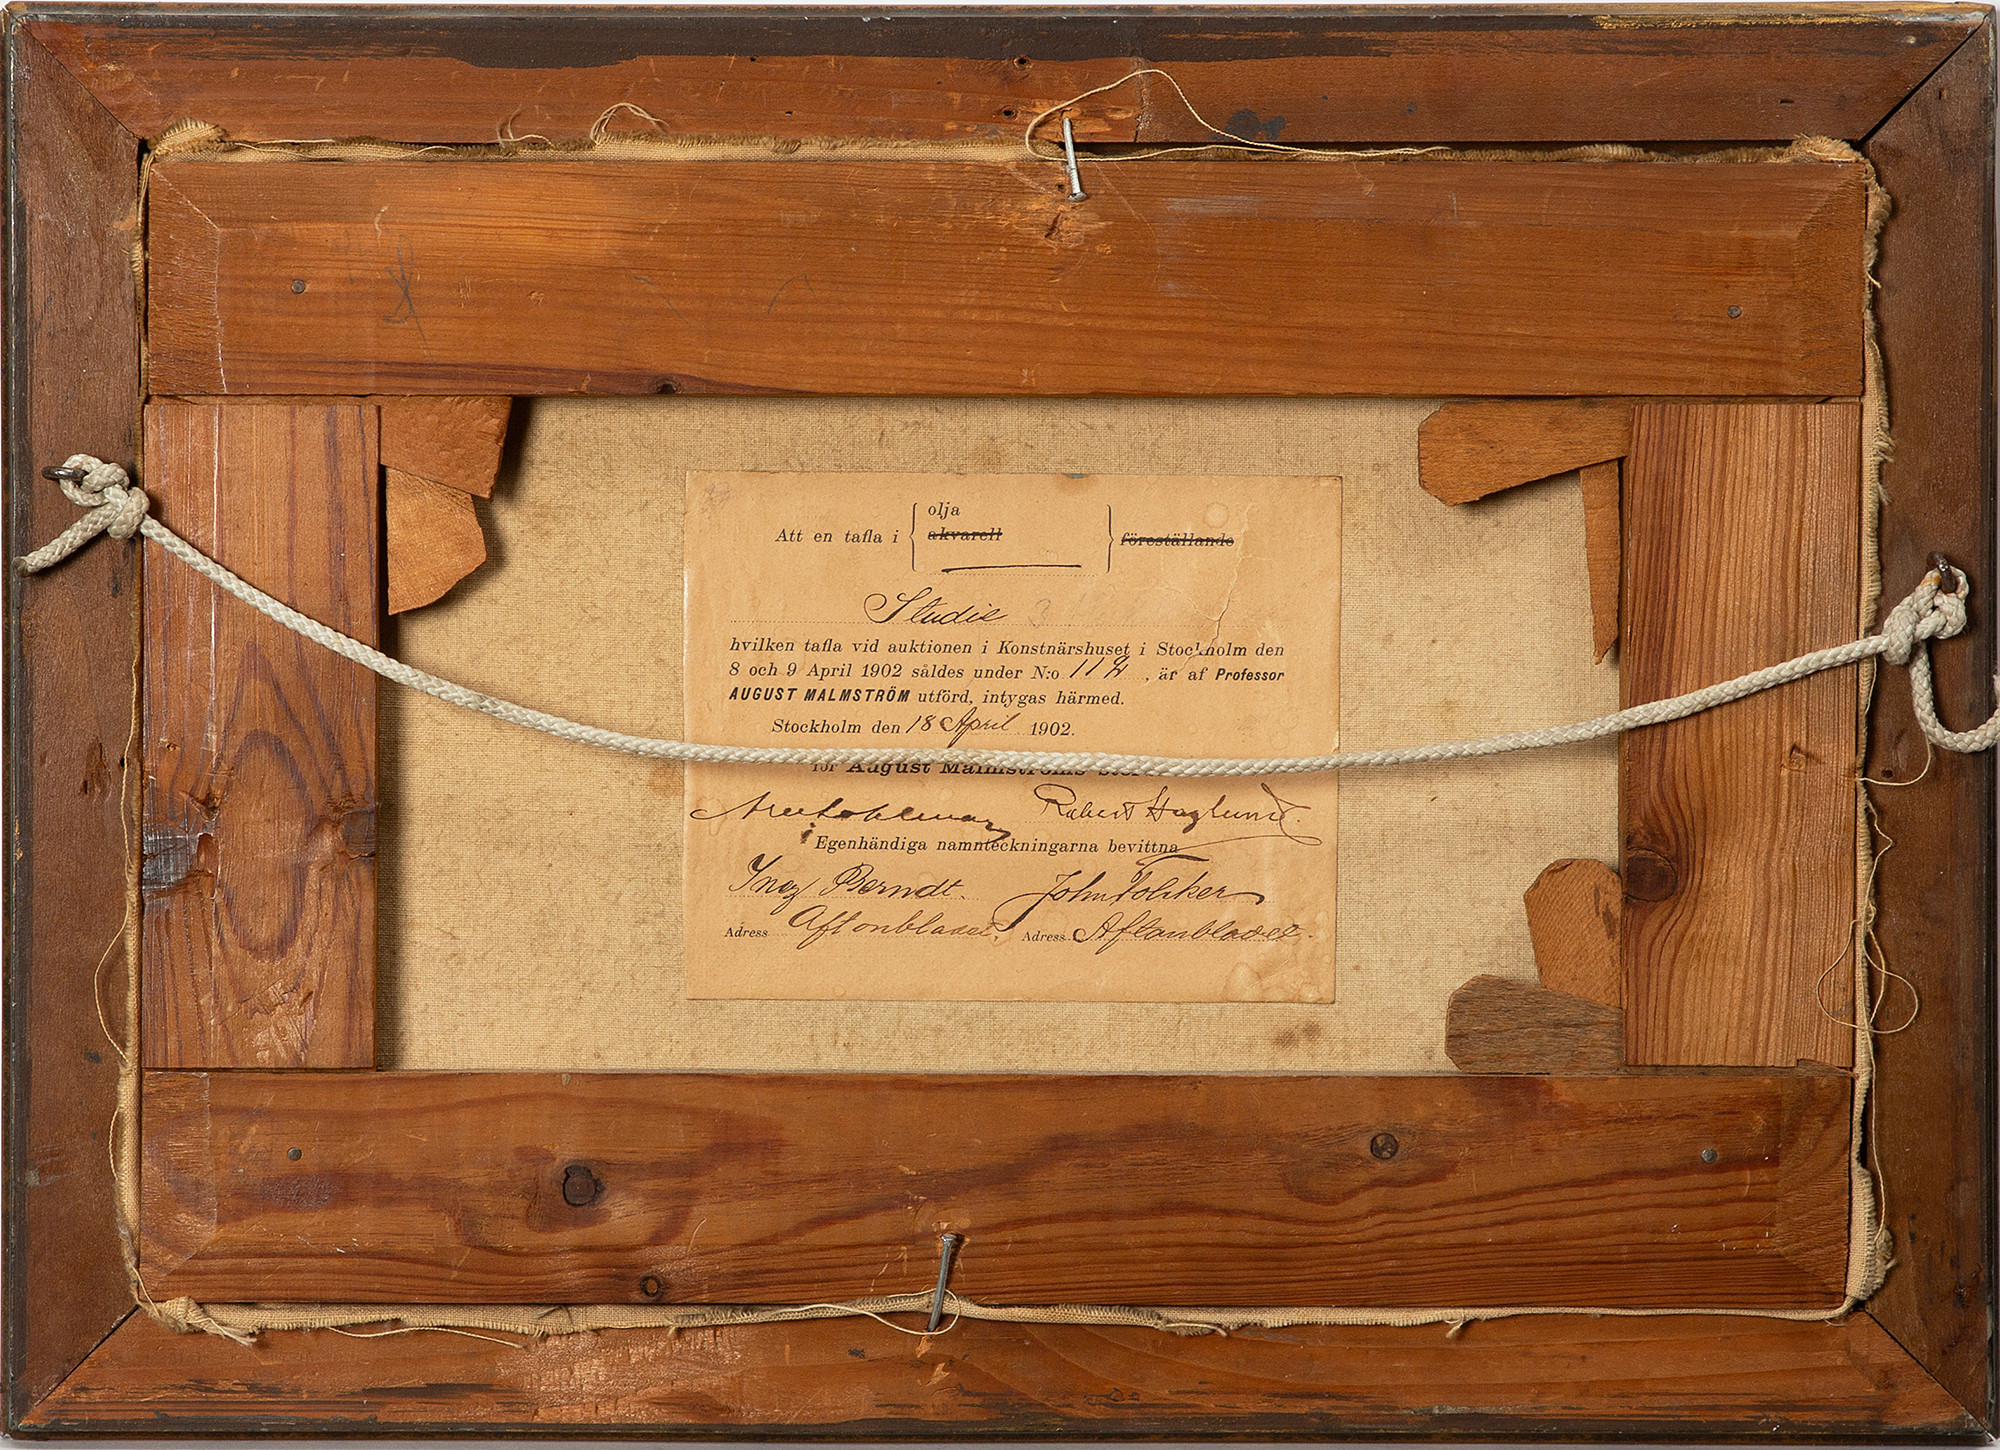 olja
Att en tafla i { akvarell } föreställande
Studie 3
hvilken tafla vid auktionen i Konstnärshuset i Stockholm den
8 och 9 April 1902 såldes under N:o 112, är af Professor
AUGUST MALMSTRÖM utförd, intygas härmed.
Stockholm den 18 April 1902.
för August Malmströms
Robert Haglund.
Egenhändiga namnteckningarna bevittna
Inez Berndt. John Folcker
Adress Aftonbladet. Adress Aftonbladet.